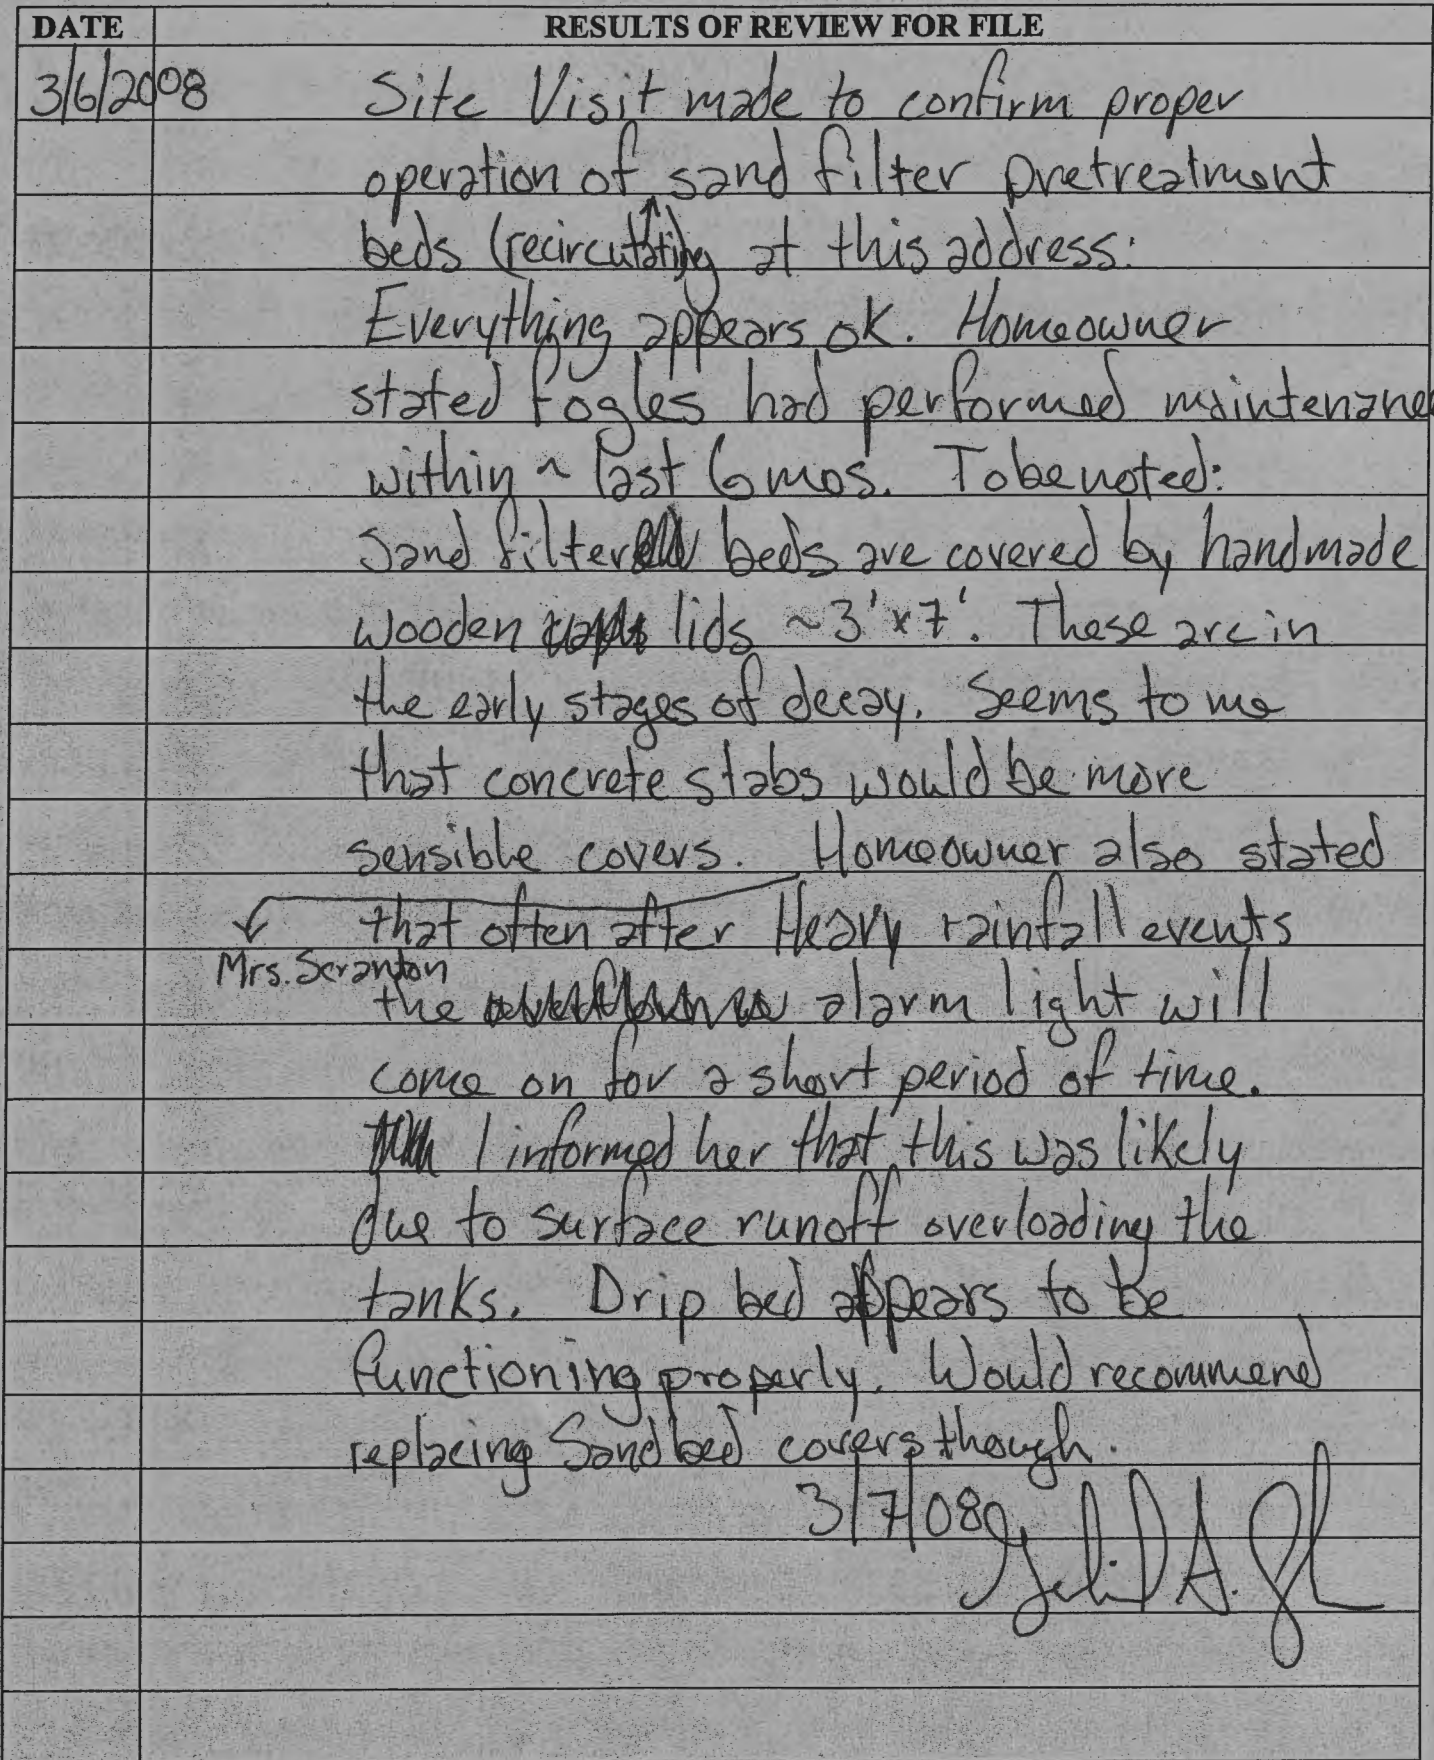 DATE RESULTS OF REVIEW FOR FILE
3/6/2008 Site Visit made to confirm proper
operation of sand filter pretreatment
beds (recirculating) at this address:
Everything appears ok. Homeowner
stated Fogles had performed maintenance
within ~ last 6 mos. To be noted:
Sand filter beds are covered by handmade
wooden lids ~3'x7'. These are in
the early stages of decay. Seems to me
that concrete slabs would be more
sensible covers. Homeowner also stated
that often after Heavy rainfall events
Mrs. Scranton
the alarm light will
come on for a short period of time.
I informed her that this was likely
due to surface runoff overloading the
tanks. Drip bed appears to be
functioning properly. Would recommend
replacing Sand bed covers though.
3/7/08